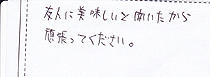 友人に美味しいと聞いたから
頑張ってください。